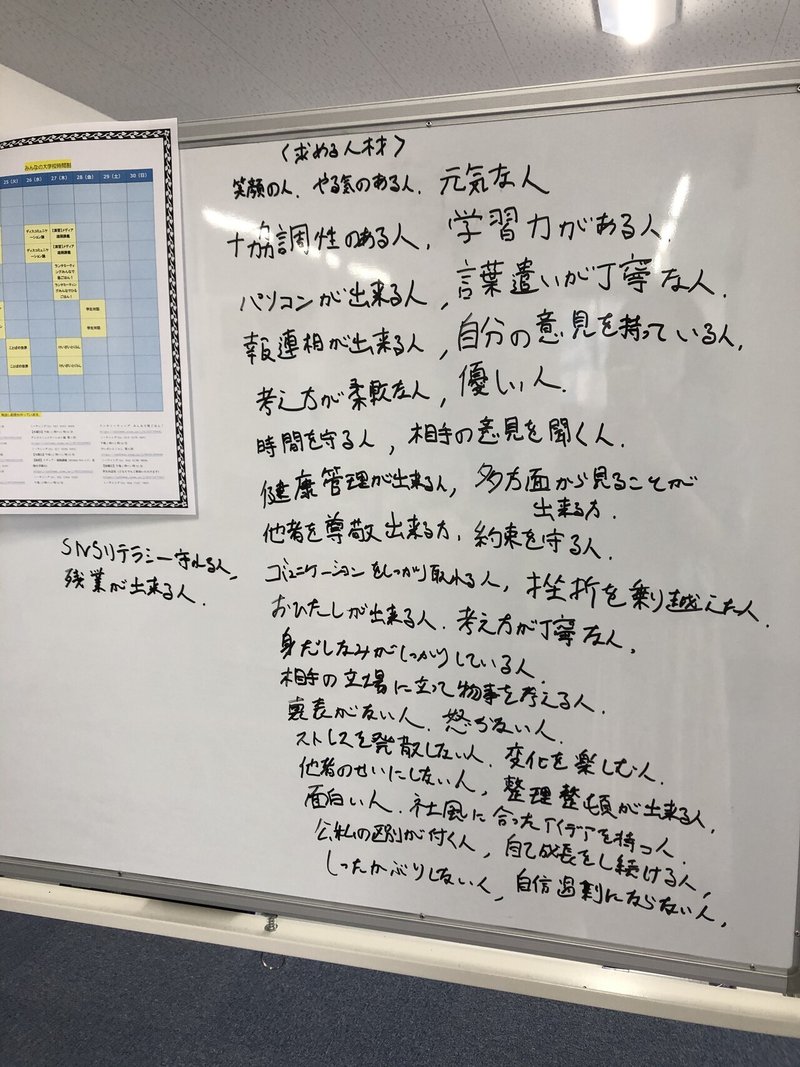 みんなの大学校時間割
25 (火) 26 (水) 27 (木) 28 (金) 29 (土) 30 (日)
〈求める人材〉
笑顔の人、やる気のある人、元気な人
協調性のある人、学習力がある人、
パソコンが出来る人、言葉遣いが丁寧な人、
報連相が出来る人、自分の意見を持っている人、
考え方が柔軟な人、優しい人、
時間を守る人、相手の意見を聞く人、
健康管理が出来る人、多方面から見ることが
出来る方、
他者を尊敬出来る方、約束を守る人、
コミュニケーションをしっかり取れる人、挫折を乗り越えた人、
おひたしが出来る人、考え方が丁寧な人、
身だしなみがしっかりしている人、
相手の立場に立って物事を考える人、
裏表がない人、怒らない人、
ストレスを発散しない人、変化を楽しむ人、
他者のせいにしない人、整理整頓が出来る人、
面白い人、社風に合ったアイデアを持つ人、
公私の区別が付く人、自己成長をし続ける人、
しったかぶりしない人、自信過剰にならない人、
SNSリテラシー守れる人、
残業が出来る人、